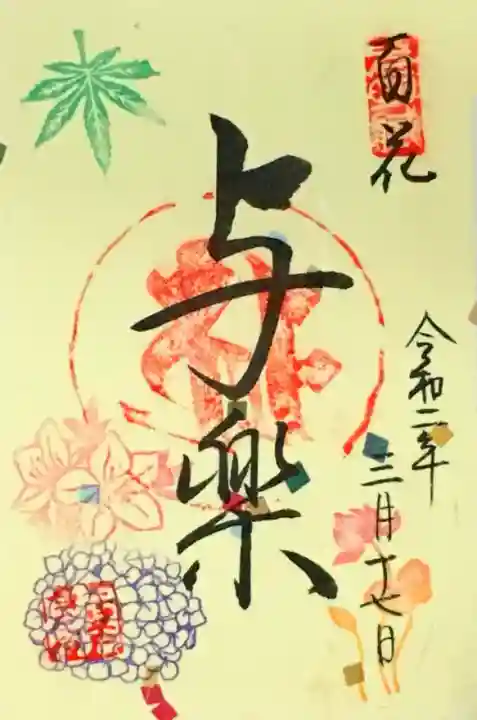 百花
与楽
令和二年
三月十七日